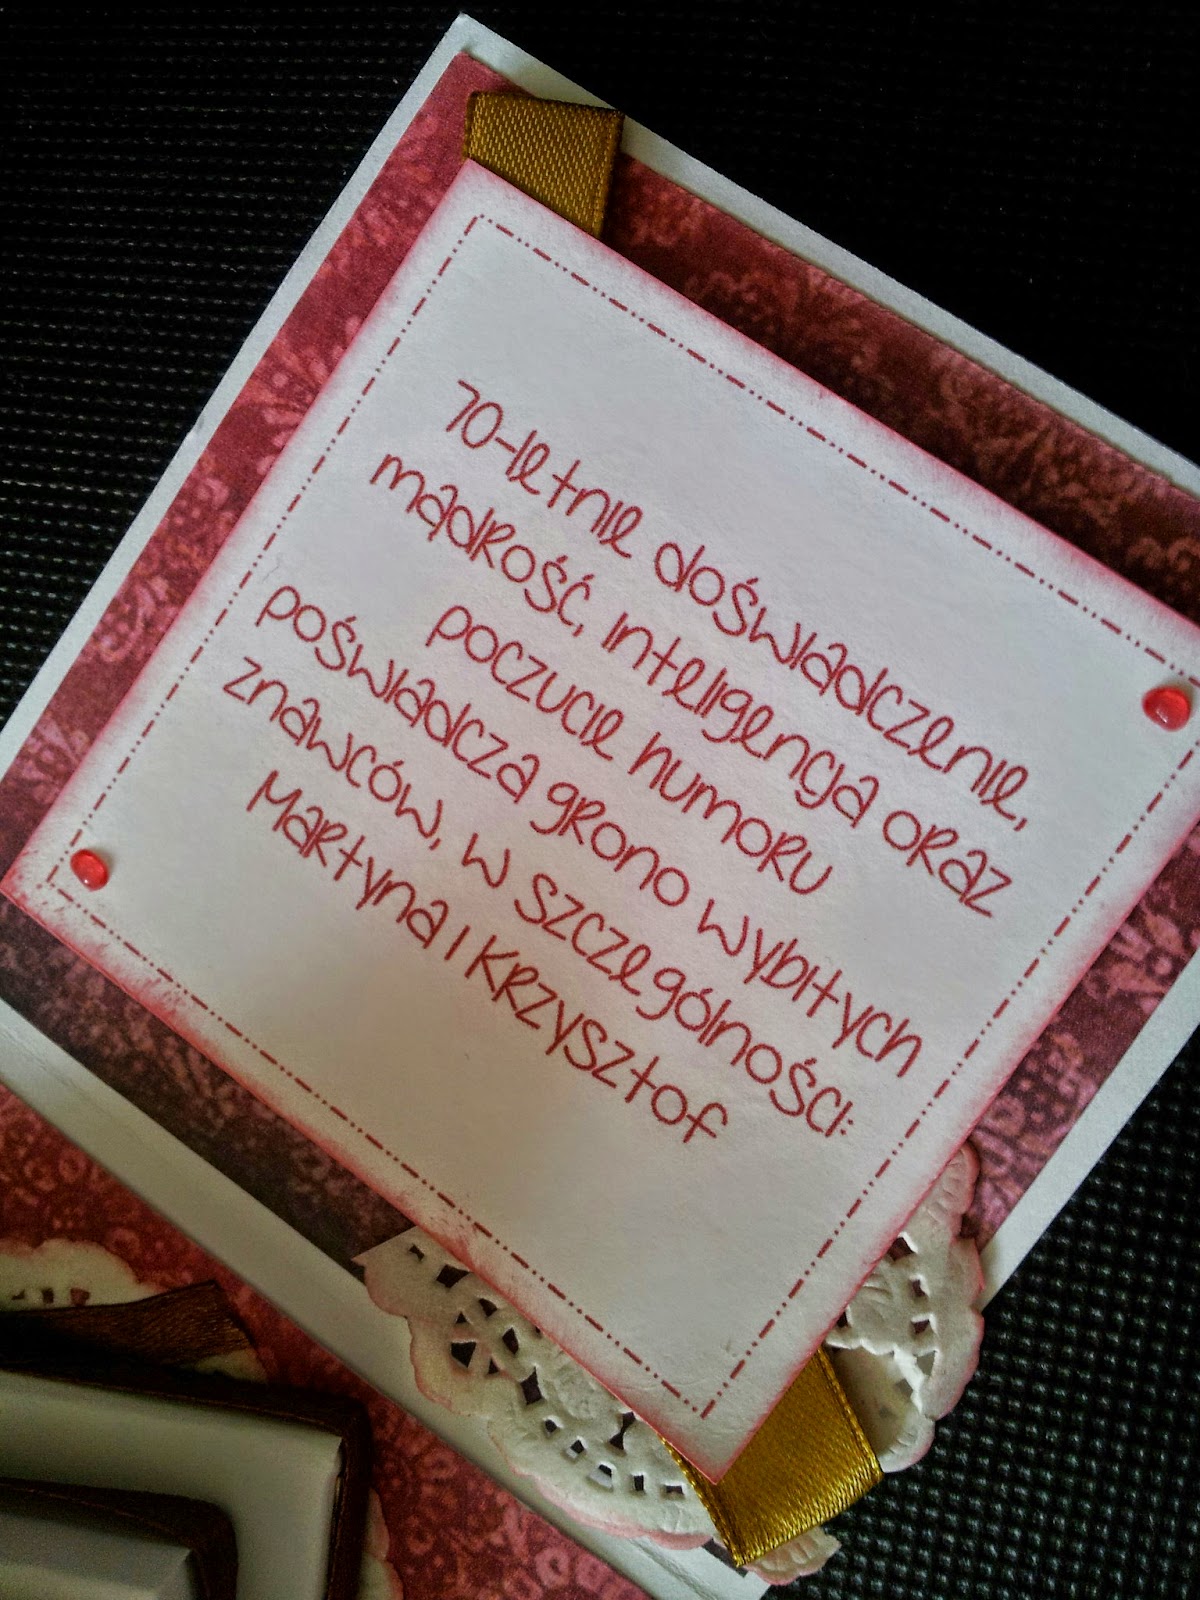 70-letnie doświadczenie,
mądrość, inteligencja oraz
poczucie humoru
poświadcza grono wybitych
znawców, w szczególności:
Martyna i Krzysztof